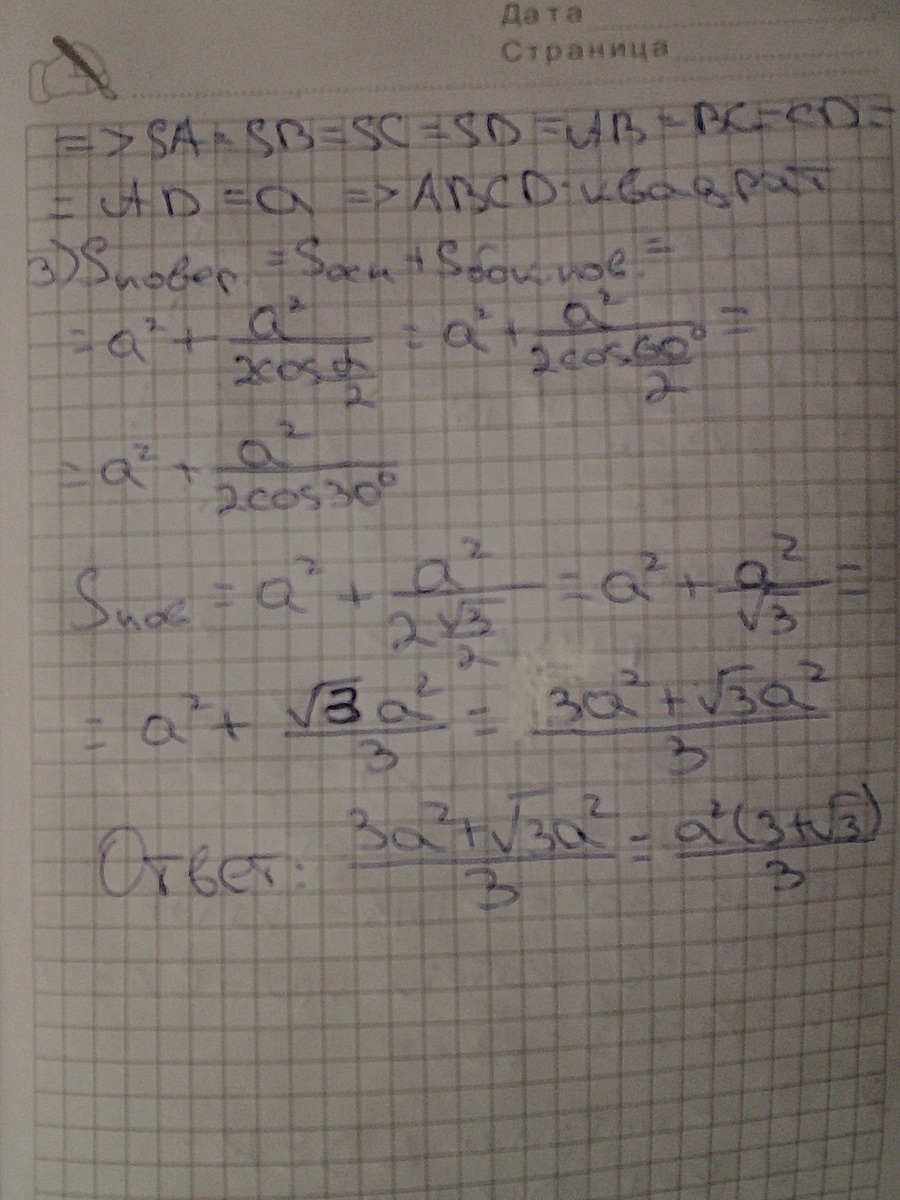 Дата
Страница
=> SA = SB = SC = SD = AB = BC = CD =
= AD = a => ABCD - квадрат
3) Sповер. = Sосн + Sбок.пов. =
= a² + a²/(2cos α/2) = a² + a²/(2cos 60°/2) =
= a² + a²/(2cos30°)
Sпов = a² + a²/(2 √3/2) = a² + a²/√3 =
= a² + √3a²/3 = (3a² + √3a²)/3
Ответ: (3a² + √3a²)/3 = a²(3+√3)/3